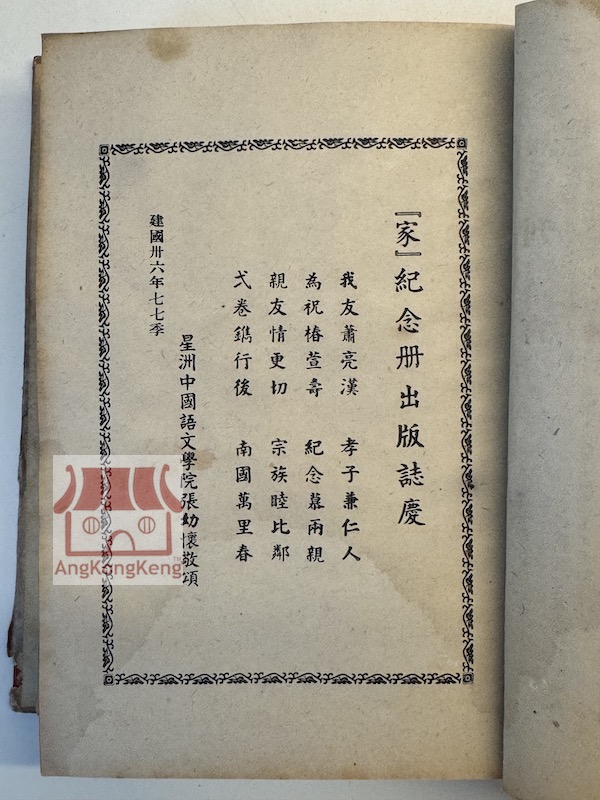 『家』紀念册出版誌慶
我友蕭亮漢　孝子兼仁人
為祝椿萱壽　紀念慕兩親
親友情更切　宗族睦比鄰
弍卷鐫行後　南國萬里春
星洲中國語文學院張幼懷敬頌
建國卅六年七七季
AngKongKeng™